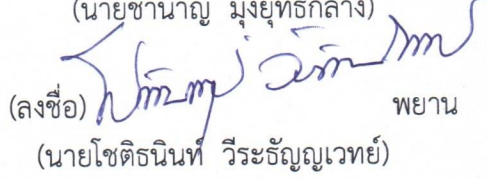 (นายชำนาญ มุ่งยุทธกลาง)
(ลงชื่อ) พยาน
(นายโชติธนินท์ วีระธัญญเวทย์)